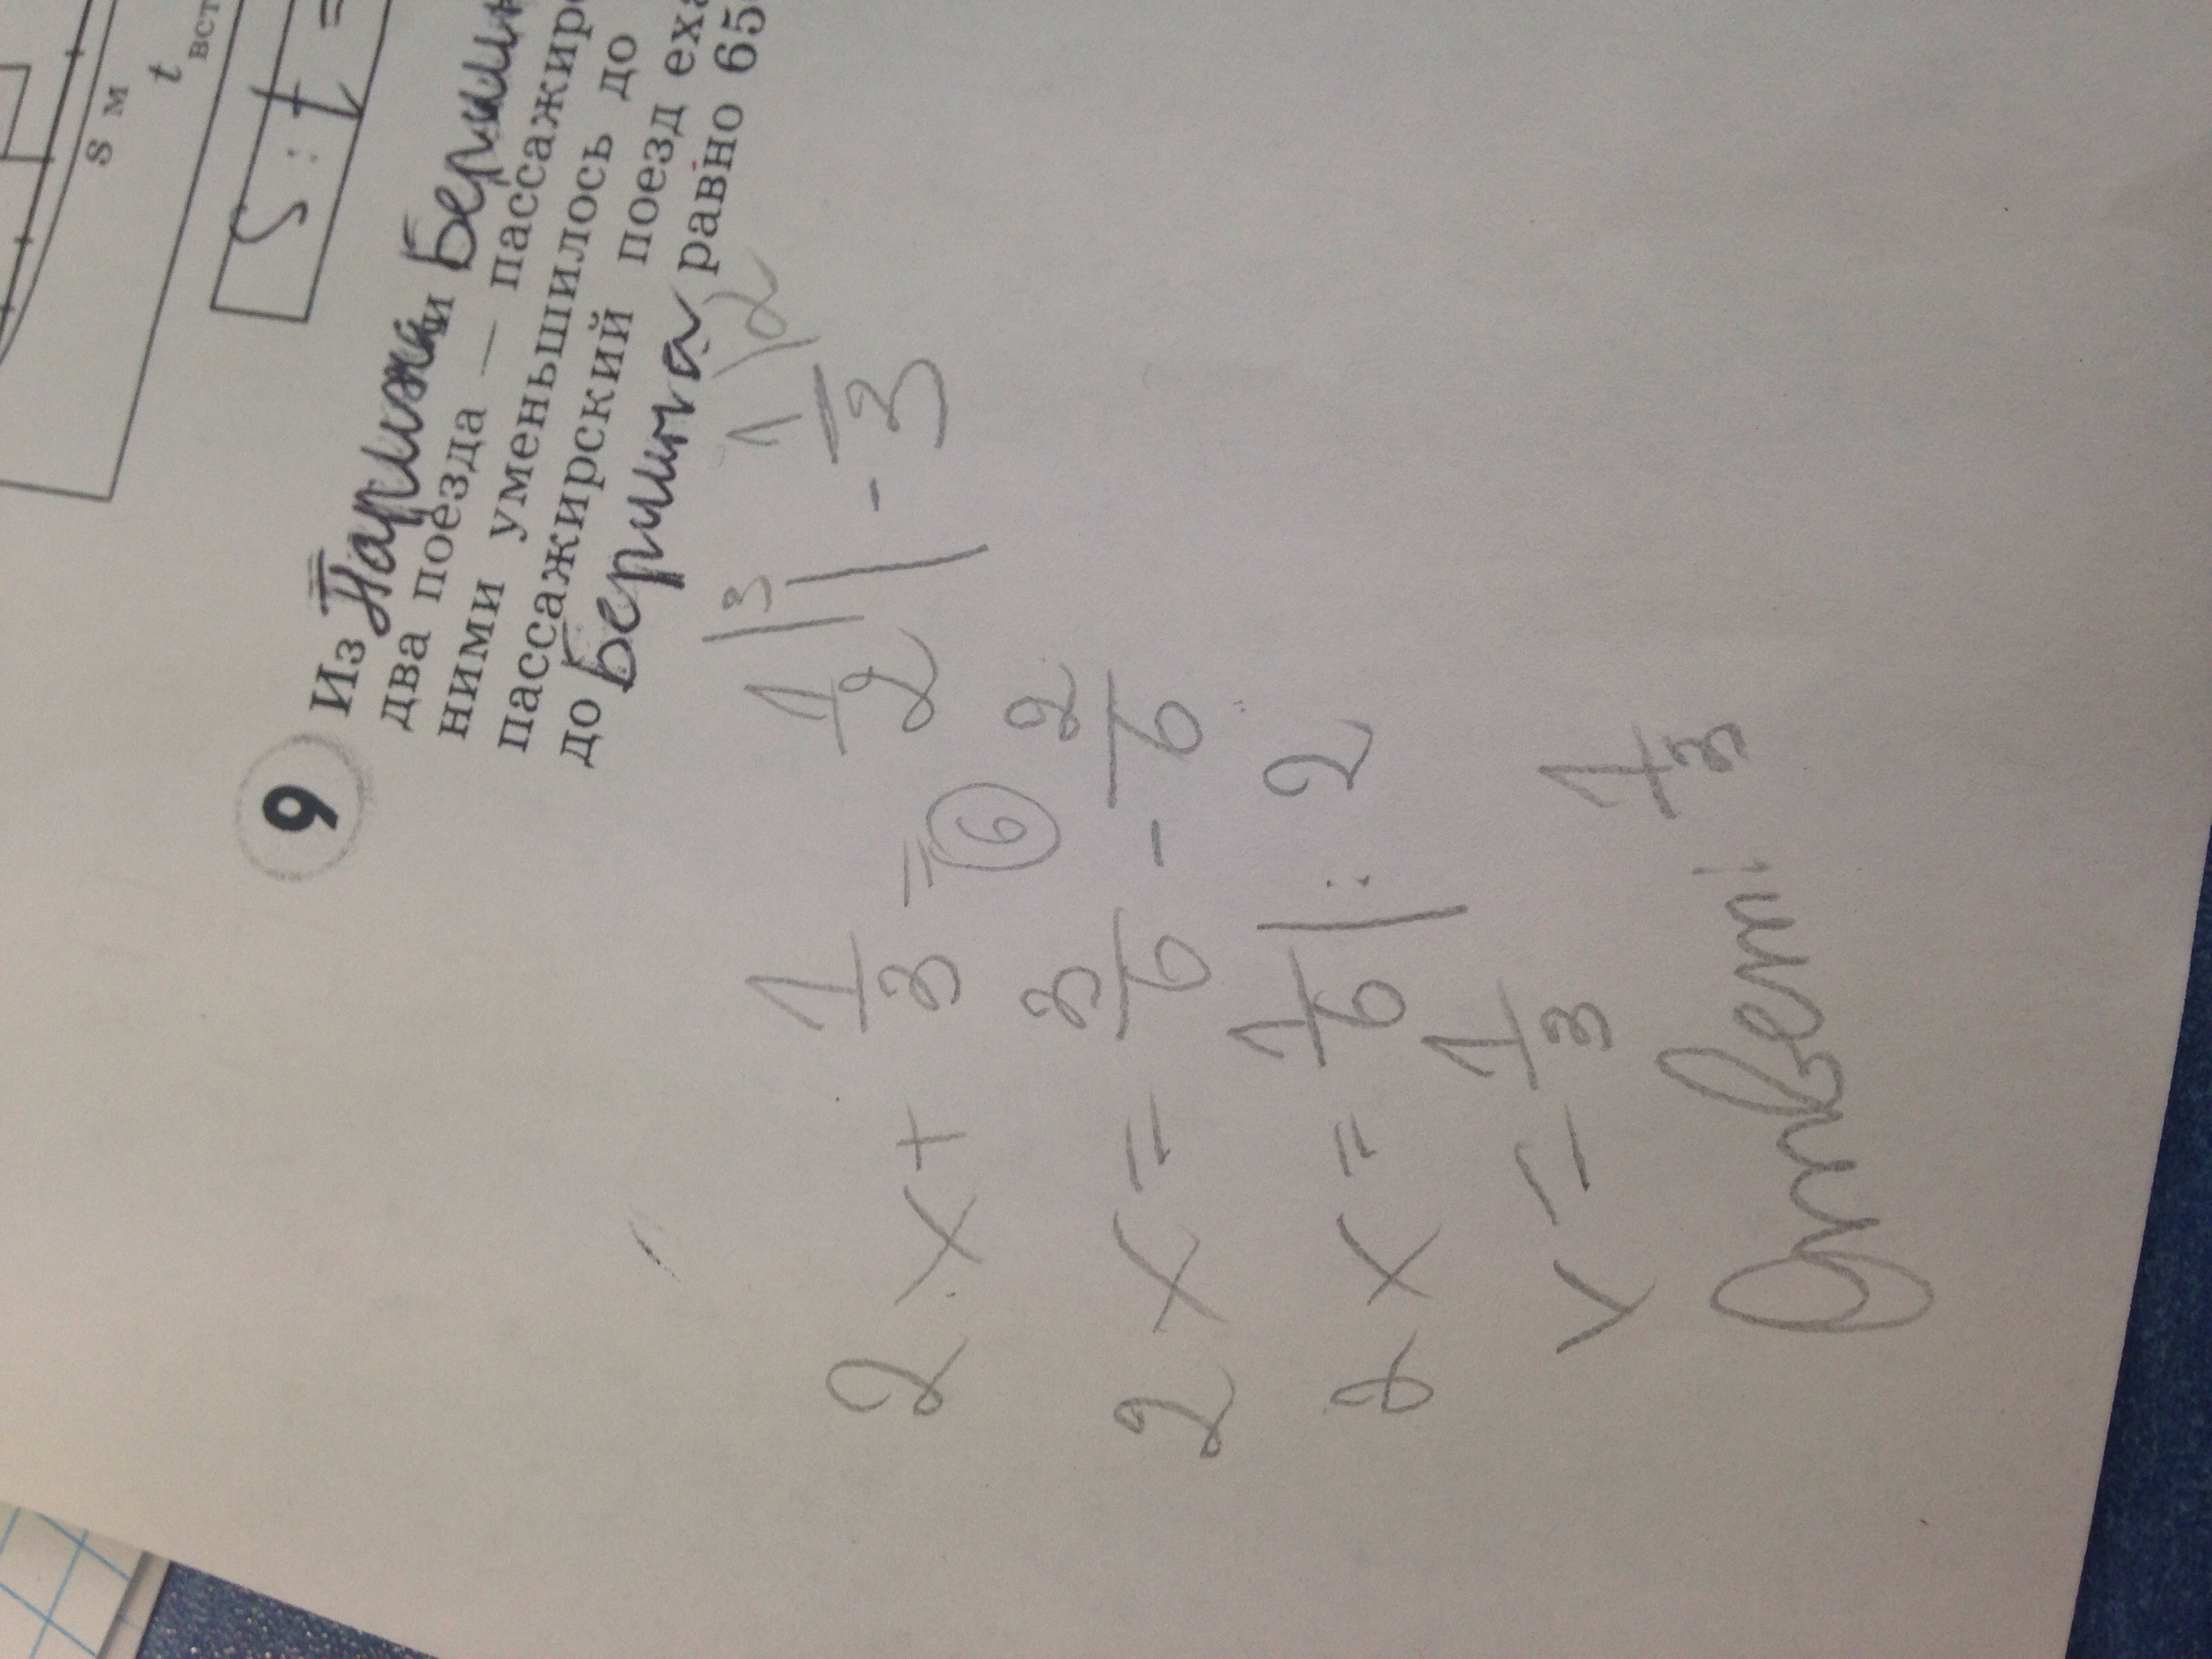 s м
t вст
S : t =
9 Из Парижа и Берлин
два поезда — пассажир
ними уменьшилось до
пассажирский поезд еха
до Берлина равно 65
2x + 1/3 = 1/2 |3 | - 1/3 |2
6
2x = 3/6 - 2/6
2x = 1/6 | : 2
x = 1/3
Ответ: 1/3